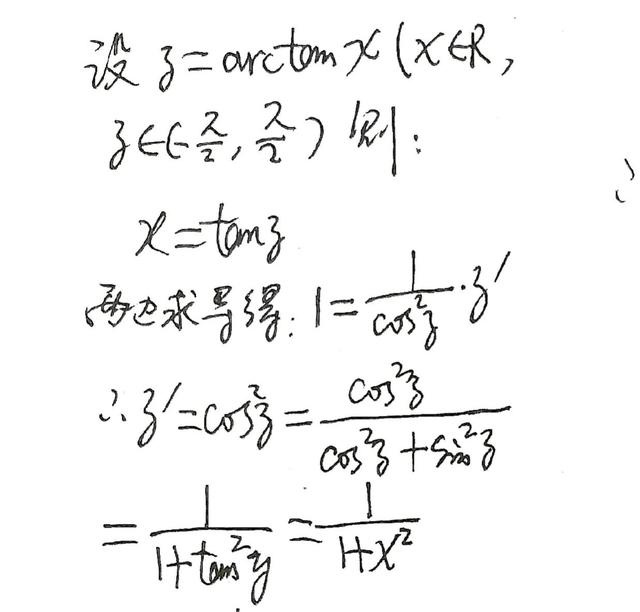 设 y = arctan x (x∈R,
y∈(-π/2, π/2) 则:
x = tan y
两边求导得: 1 = 1/cos²y · y′
∴ y′ = cos²y = cos²y/(cos²y + sin²y)
= 1/(1+tan²y) = 1/(1+x²)